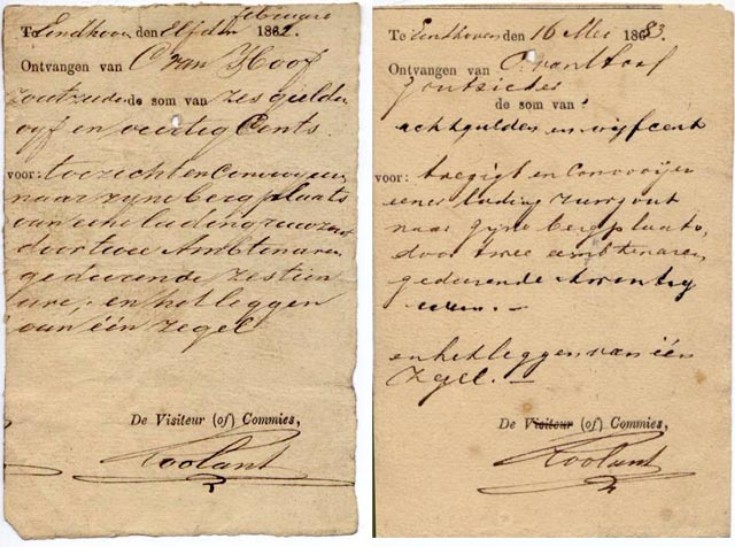 februari
Te Eindhoven den Elfden 1882.
Ontvangen van C van Hoof
zoutzieder de som van zes gulden
vyf en veertig Cents
voor: toezicht en Convooijeren
naar zyne bergplaats
van eene lading ruwzout
door twee Ambtenaren
gedurende zestien
ure; en het leggen
van één zegel
De Visiteur (of) Commies,
Roolant
Te Eindhoven den 16 Mei 1883.
Ontvangen van C. van Hoof
zoutzieder
de som van
acht gulden en vijf cent
voor: toezigt en Convooijeren
eener lading ruwzout
naar zyne bergplaats,
door twee ambtenaren,
gedurende twintig
uren. –
en het leggen van één
zegel. –
De Visiteur (of) Commies,
Roolant